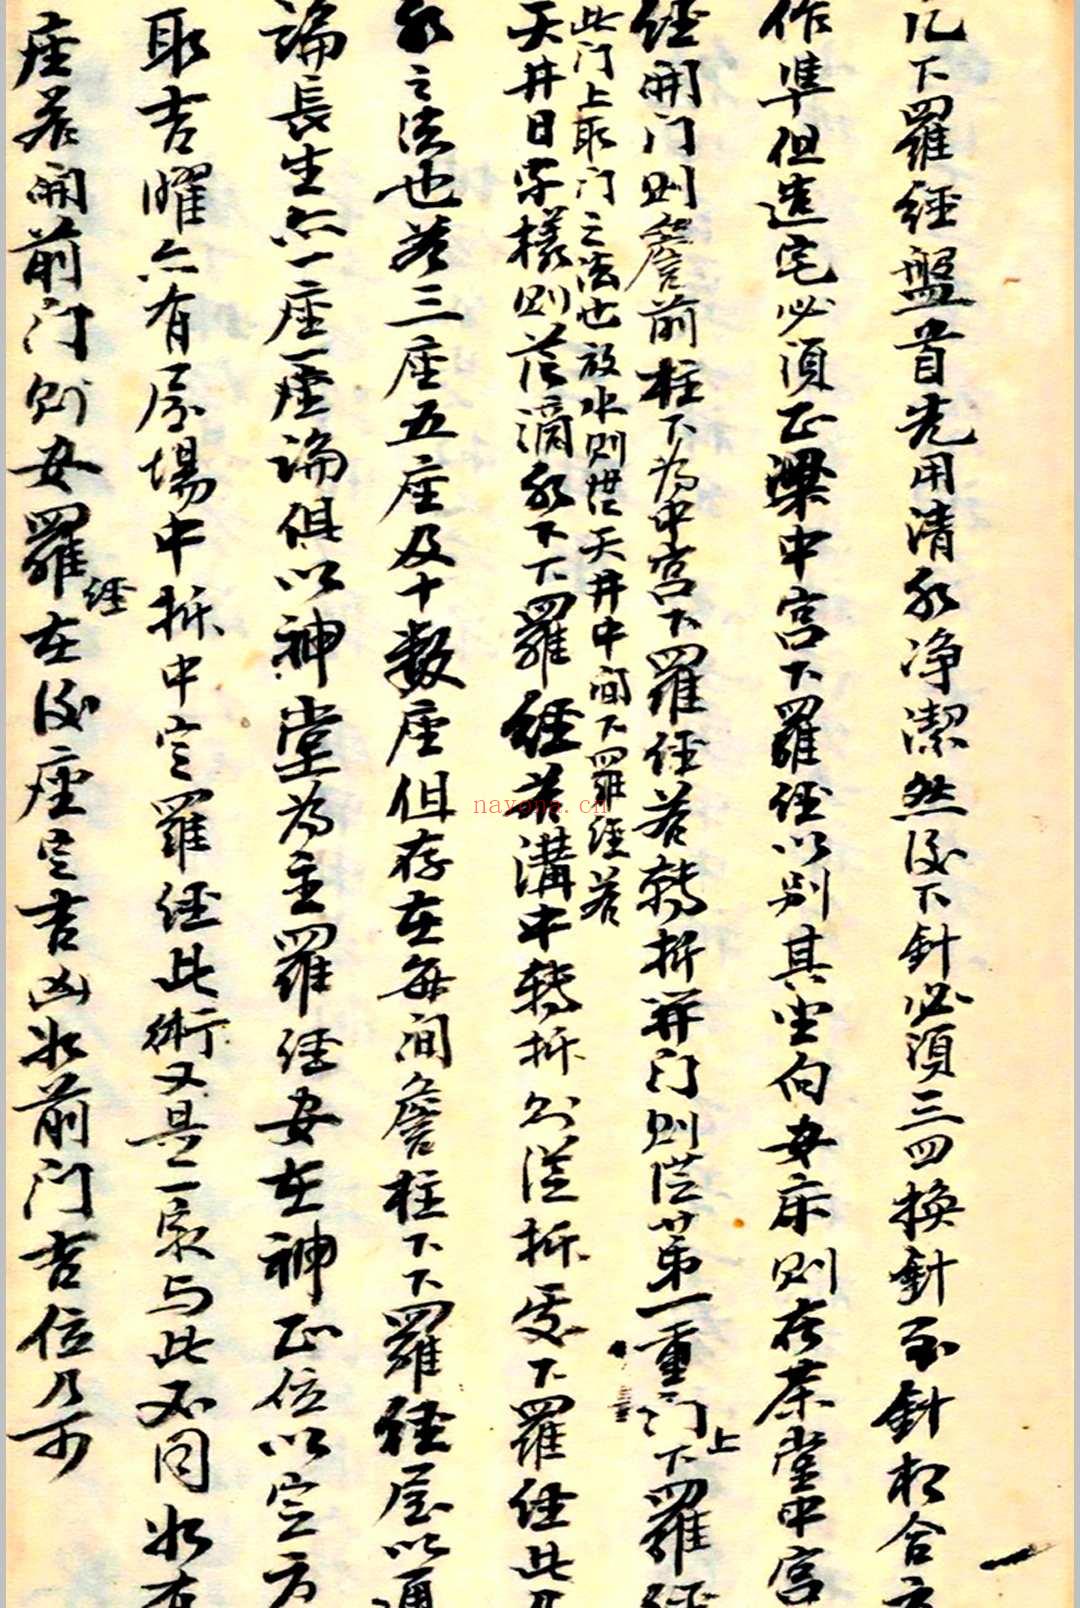 凡下羅經盤首先用清水净潔然後下針必須三四換針至針相合方
作準但造宅必須正樑中宮下羅經以别其坐向安床則在茶堂中宮
經開门则簷前柱下為中宮下羅經若轉拆併门则從第一重门上下羅經
此门上取门之法也放水则從天井中间下羅經若
天井日字樣则從滴水下下羅經若溝中轉拆则從拆處下羅經此乃
水之法也若三座五座及十數座但存在每间簷柱下下羅經屋以通
論長生亦一座一座論俱以神堂為主羅經安在神正位以定方
取吉曜亦有屋場中拆中定羅經此術又是一家与此不同如有
座若開前门则安羅經在後座定吉凶如前门吉位乃可
nayona.cn